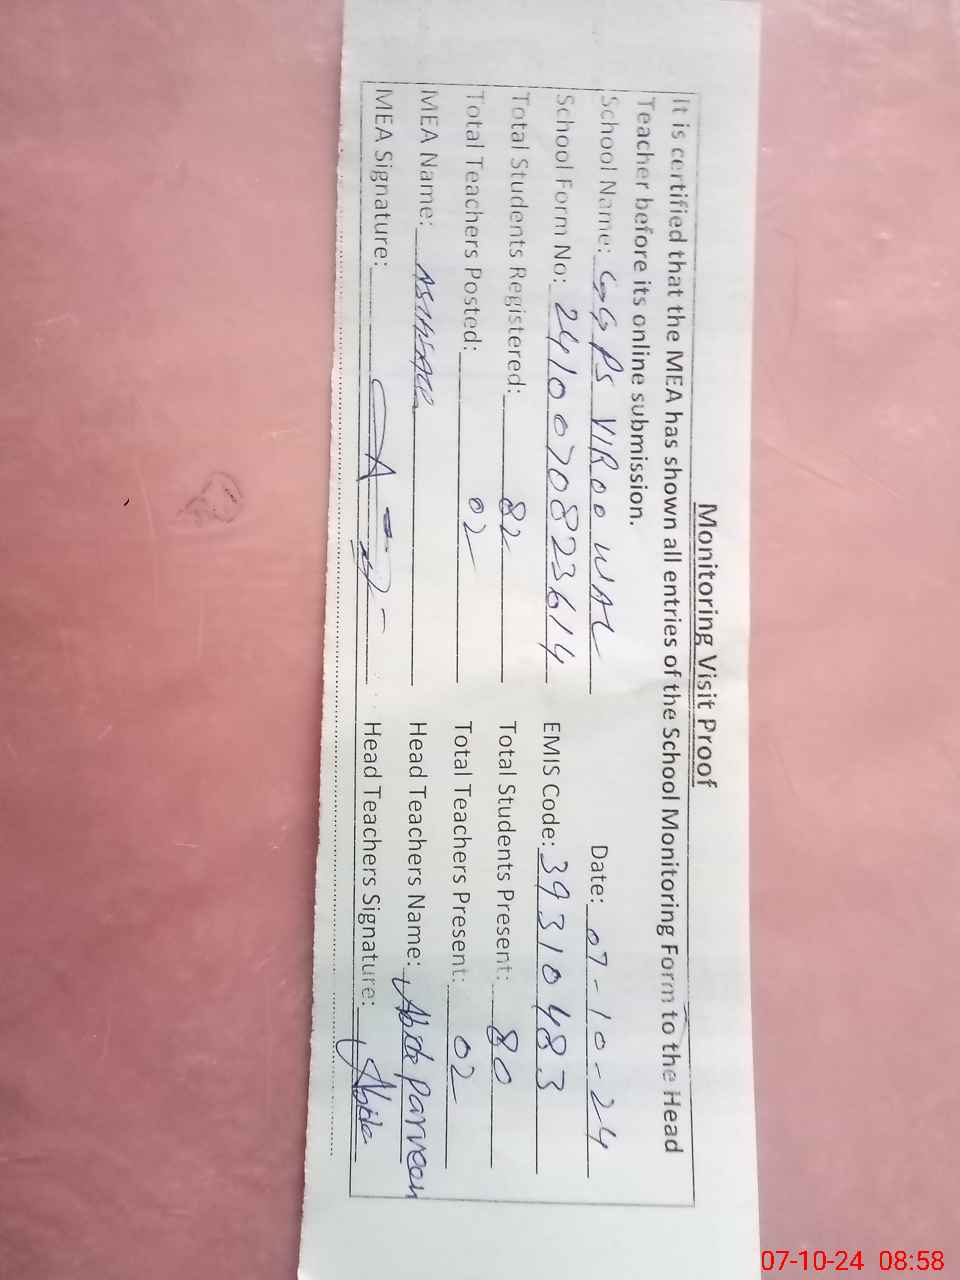 Monitoring Visit Proof
It is certified that the MEA has shown all entries of the School Monitoring Form to the Head
Teacher before its online submission.
School Name: GGPS VIROO WAL Date: 07-10-24
School Form No: 2410070823614 EMIS Code: 39310483
Total Students Registered: 82 Total Students Present: 80
Total Teachers Posted: 02 Total Teachers Present: 02
MEA Name: Head Teachers Name: Abida Parveen
MEA Signature: Head Teachers Signature: Abida
07-10-24 08:58